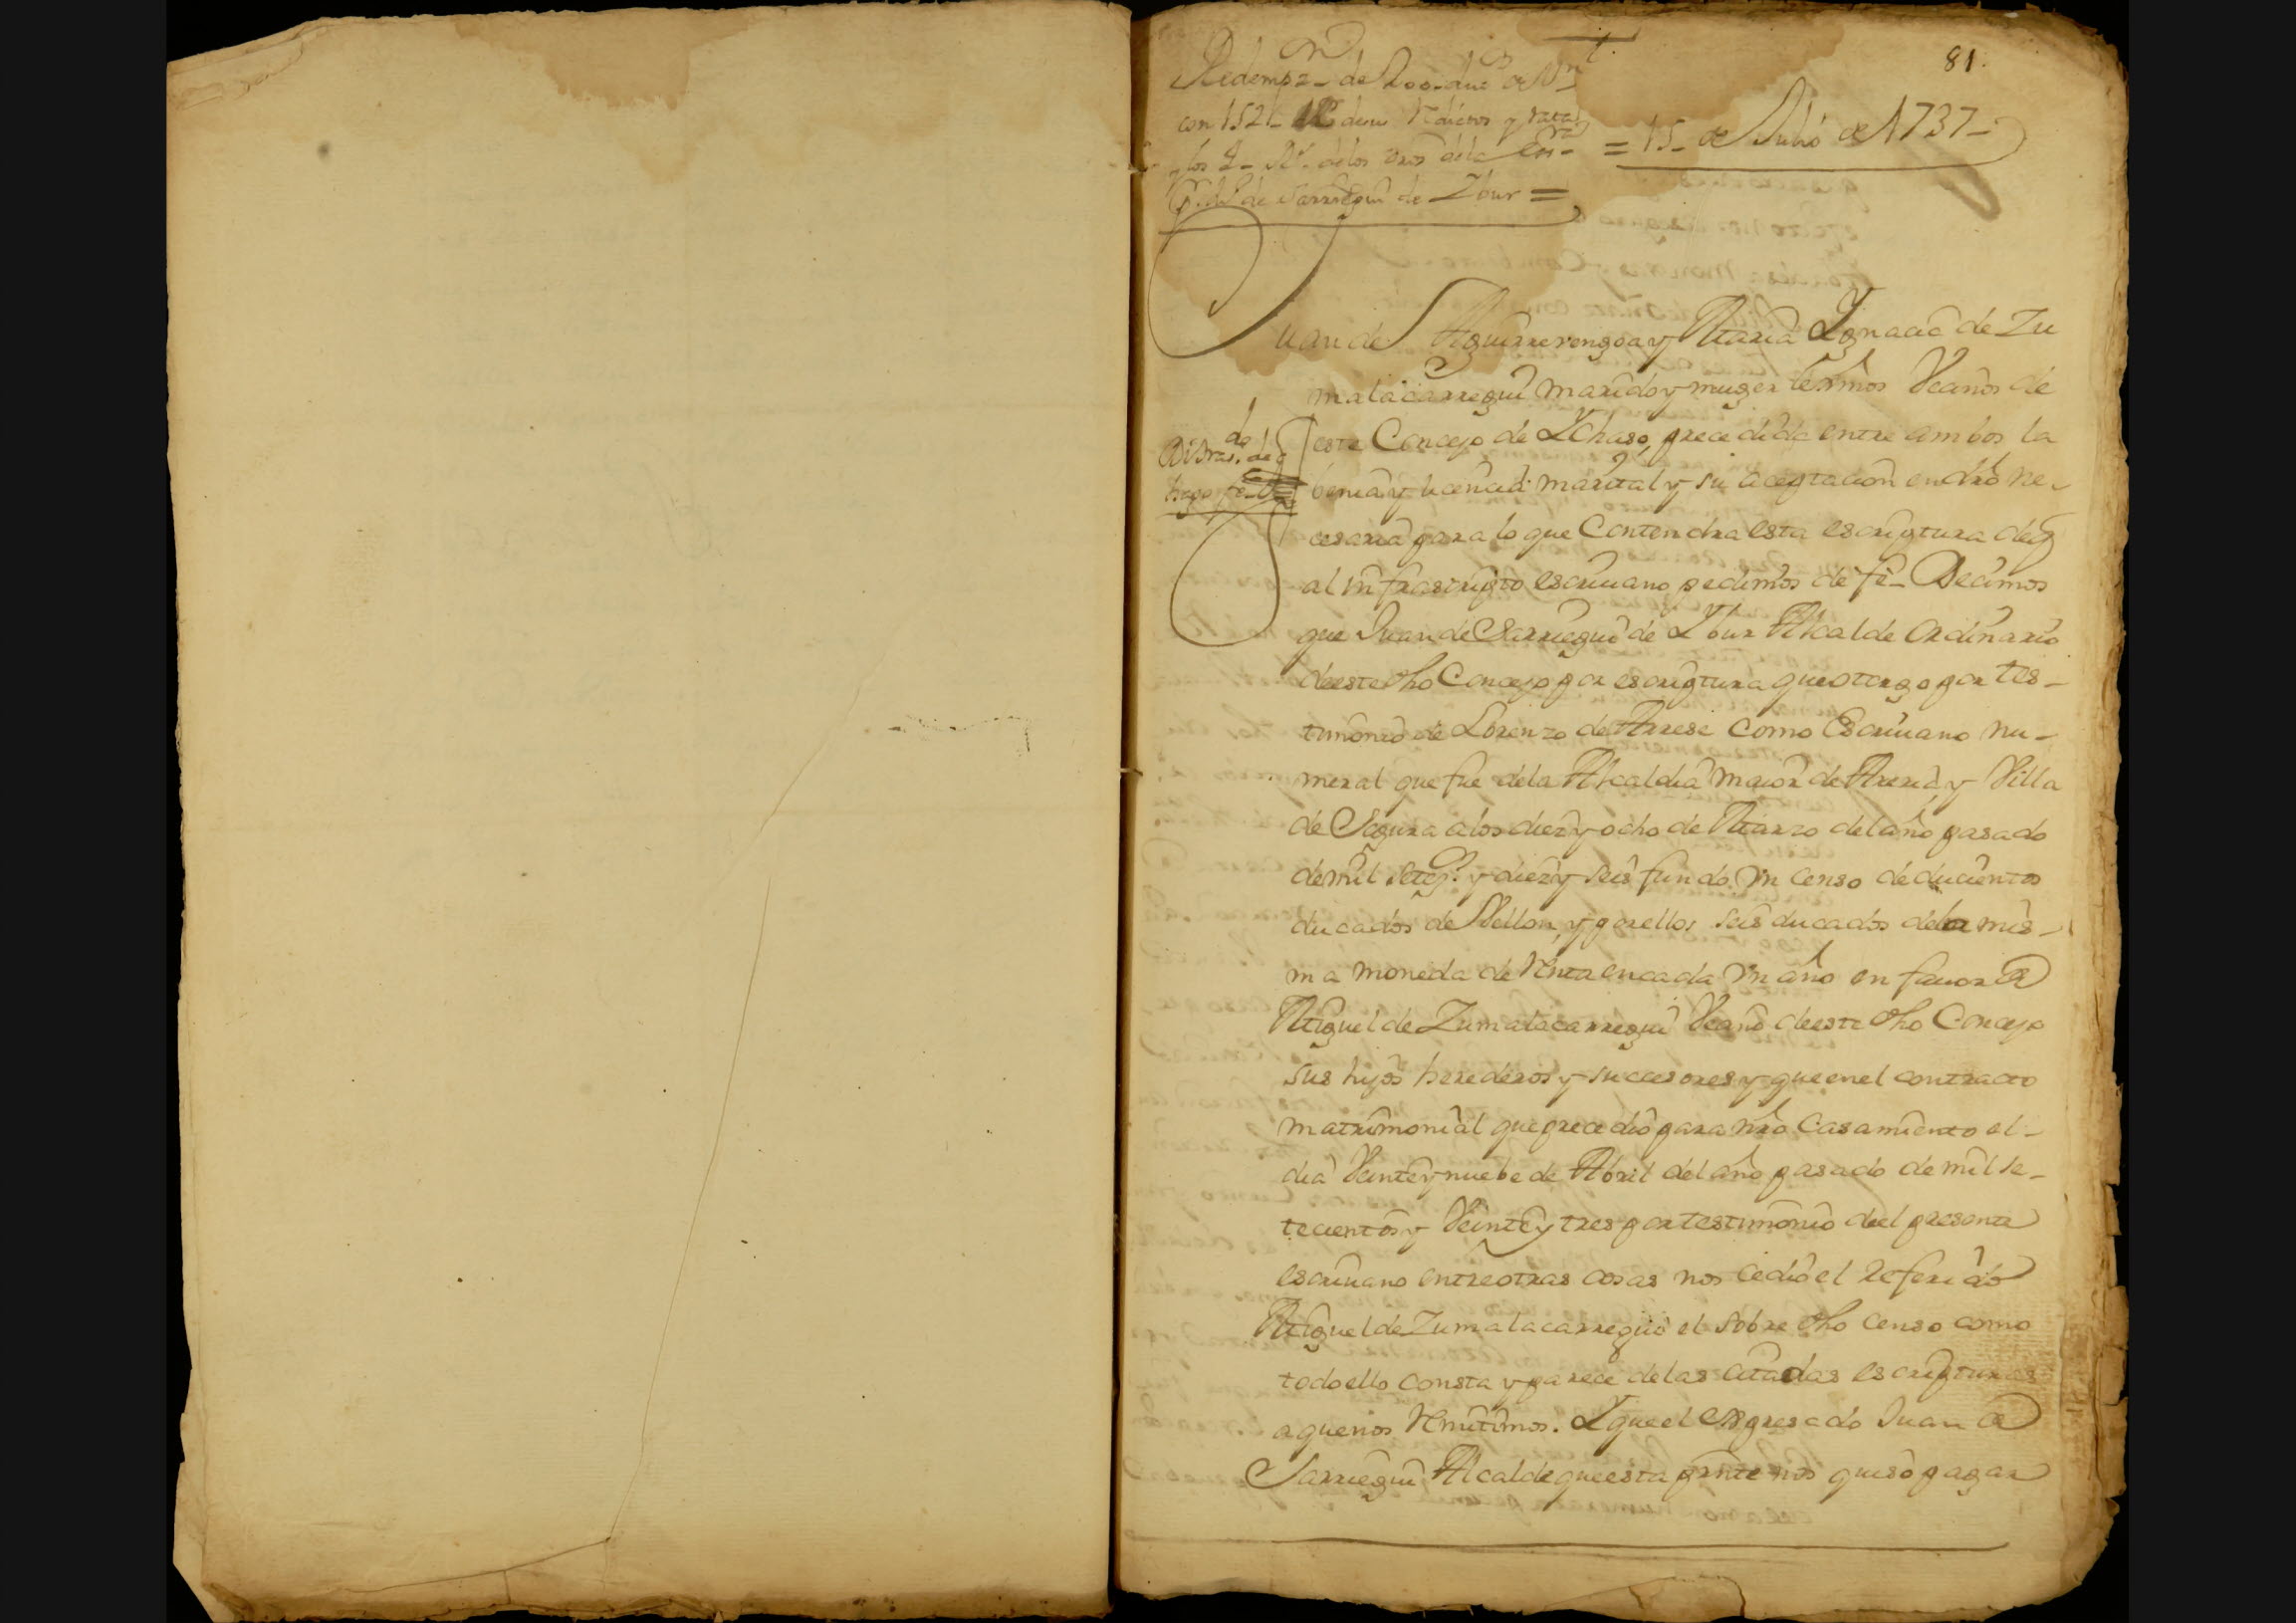 81.
Redempz.on de 200. duc.s de V.n
con 152 de sus Reditos y rata
y los 2 - R.s de los dros de la Es.ra
de Sarriegui de Ybur =
= 15 - de Julio de 1737 -
Juan de Aguirrevengoa y Maria Ygnacia de Zu
malacarregui marido y muger lexmos Vecinos de
este Concejo de Ychaso, precedida entre ambos la
benia y licencia marital y su aceptacion en dro ne-
cesaria para lo que Contendra esta escriptura de q
al infrascripto escriuano pedimos de fe - Decimos
que Juan de Sarriegui de Ybur Alcalde Ordinario
de este dho Concejo por escriptura que otorgo por tes-
timonio de Lorenzo de Arrese como Escriuano nu-
meral que fue de la Alcaldia maior de Areria, y Villa
de Segura a los diez y ocho de Marzo del año pasado
de mil setez.s y diez y seis fundo Vn censo de ducientos
ducados de Vellon, y por ellos seis ducados de la mis-
ma moneda de Renta en cada Vn año en fauor de
Miguel de Zumalacarregui Vecino de este dho Concejo
sus hijos herederos y successores y que en el contracto
matrimonial que precedio para nro Casamiento el-
dia Veinte y nuebe de Abril del año pasado de mil se-
tecientos y Veinte y tres por testimonio de el presente
escriuano entre otras cosas nos cedio el referido
Miguel de Zumalacarregui el sobre dho Censo como
todo ello consta y parece de las citadas escripturas
a que nos Remitimos. Y que el expresado Juan de
Sarriegui Alcalde que esta prnte nos quiso pagar